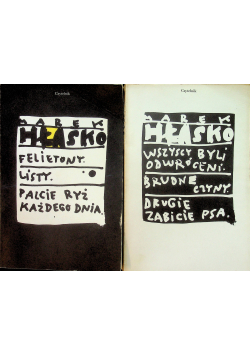 Czytelnik
MAREK
HŁASKO
FELIETONY.
LISTY.
PALCIE RYŻ
KAŻDEGO DNIA.
Czytelnik
MAREK
HŁASKO
WSZYSCY BYLI
ODWRÓCENI.
BRUDNE
CZYNY.
DRUGIE
ZABICIE PSA.